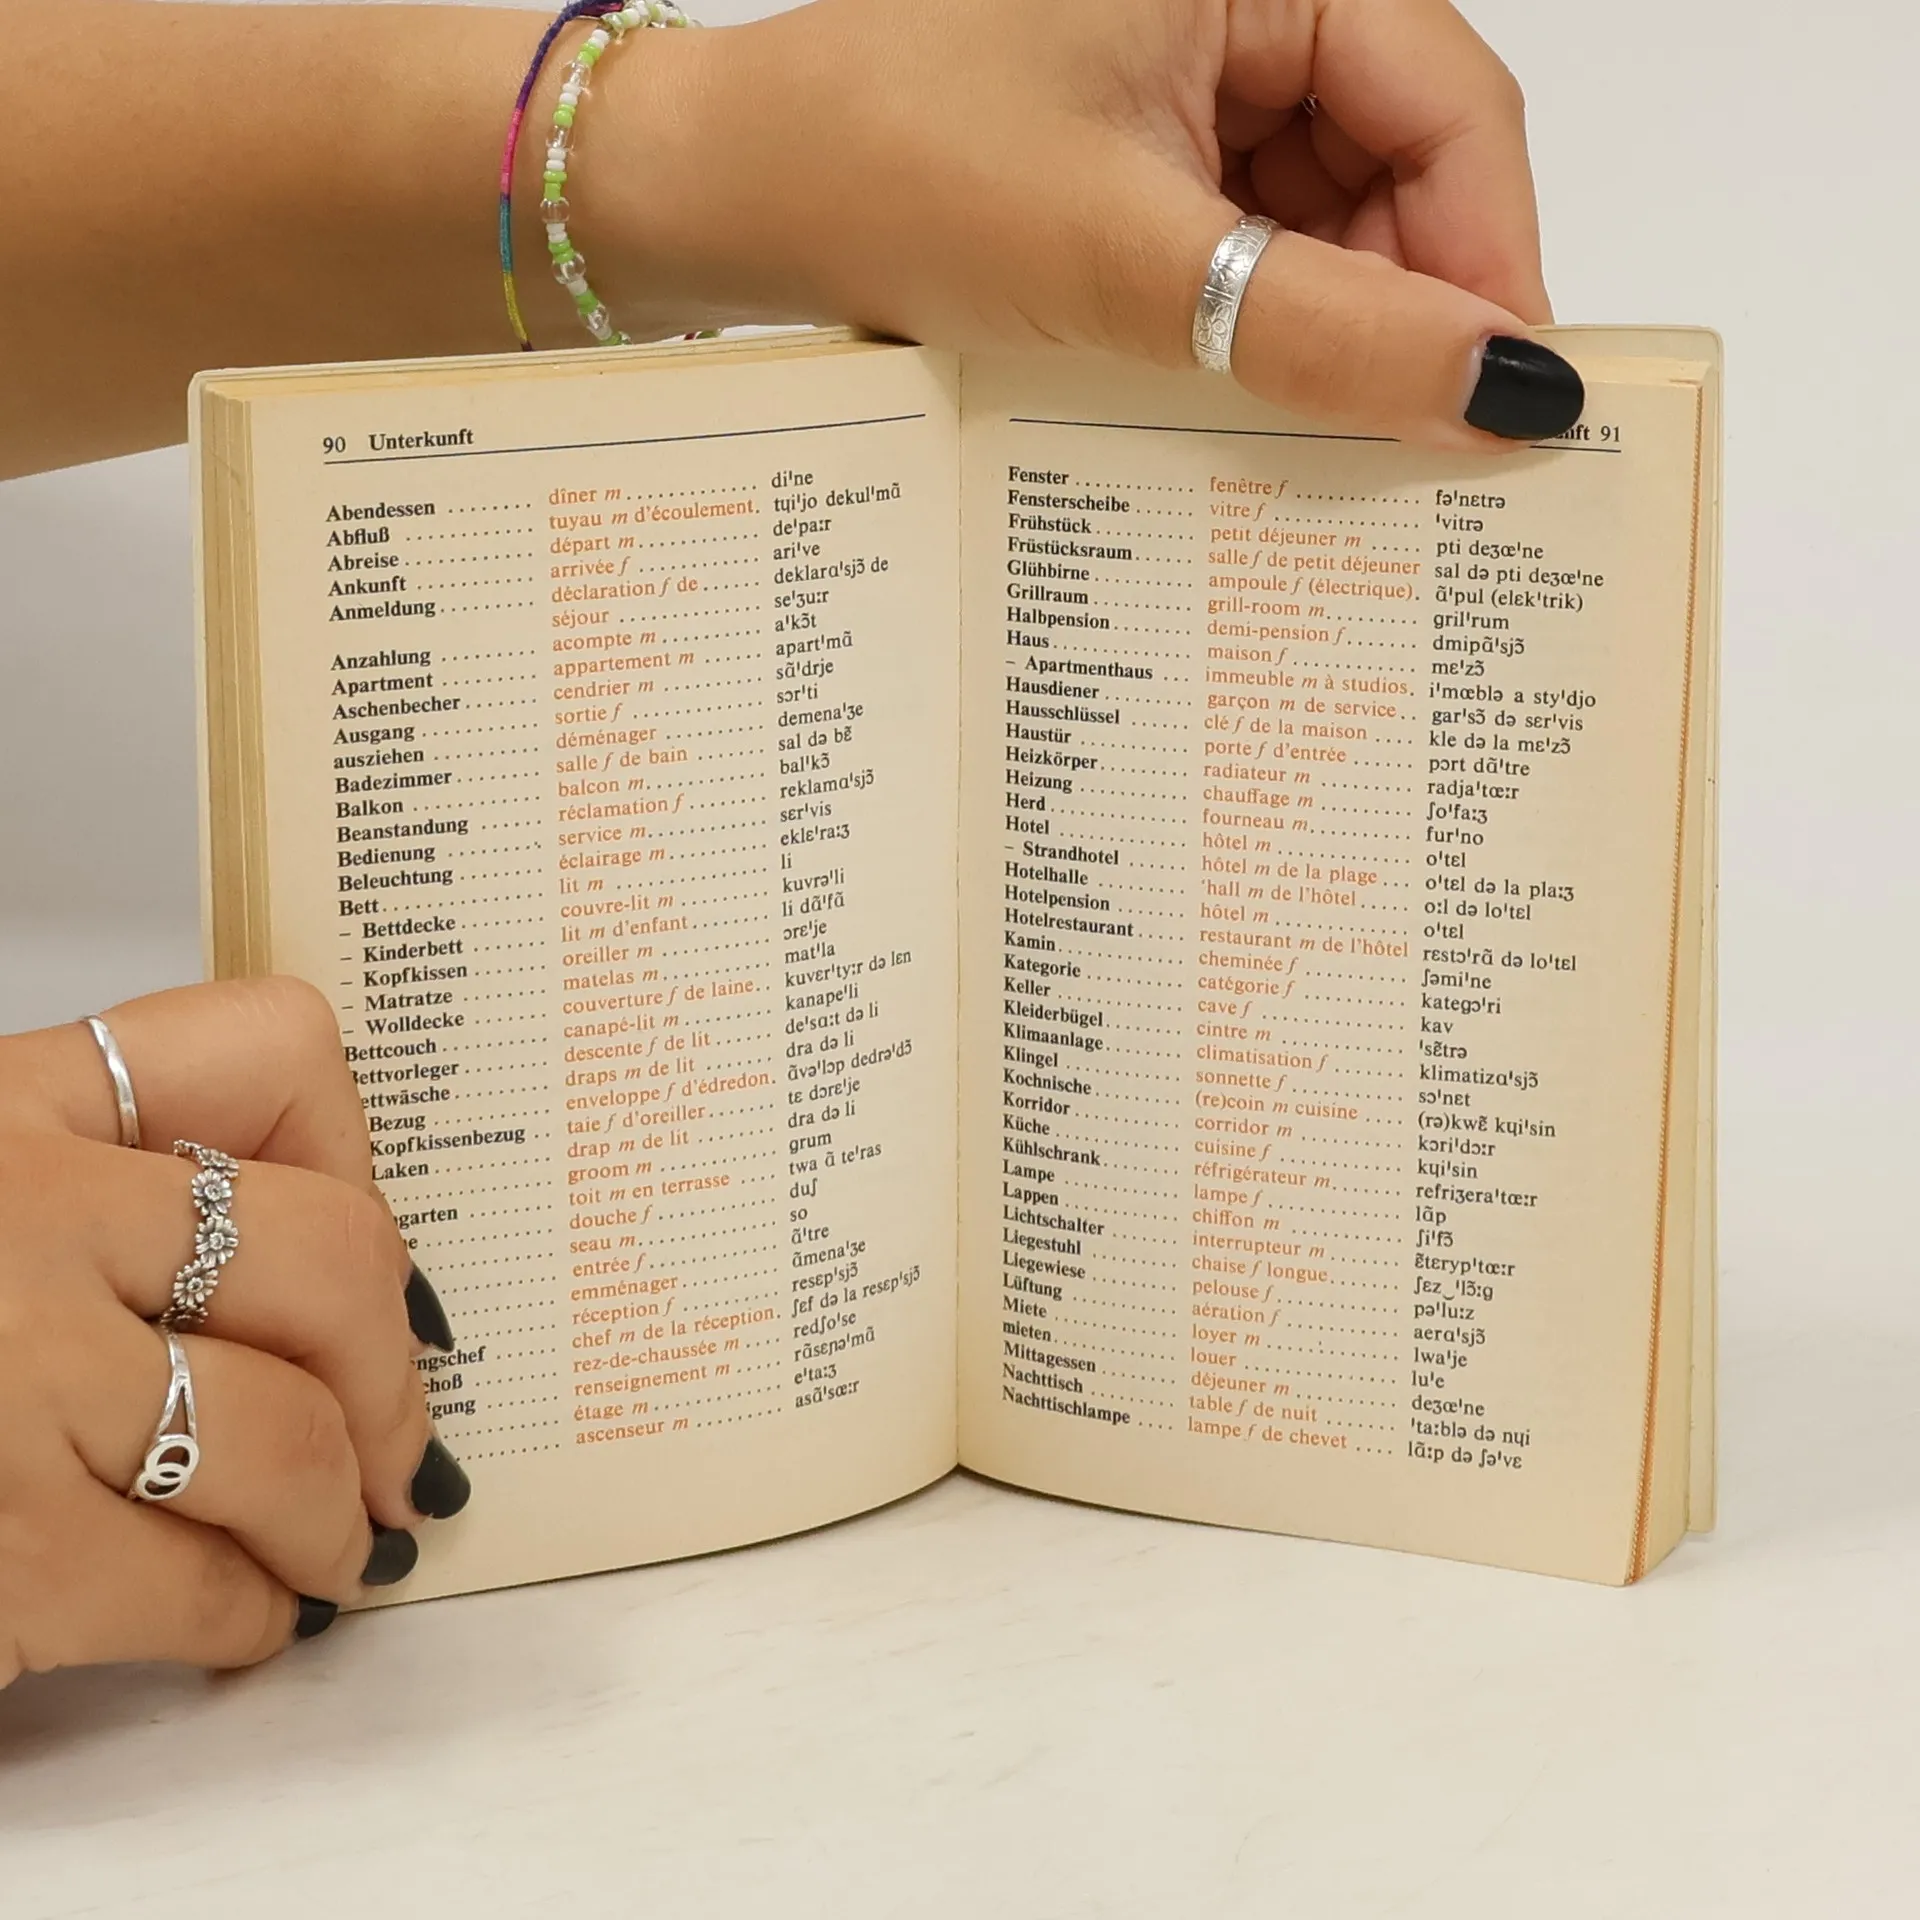 90 Unterkunft
Abendessen ........ dîner m ............. di'ne
Abfluß ........... tuyau m d'écoulement. tɥi'jo dekul'mɑ̃
Abreise ........... départ m ............ de'pa:r
Ankunft .......... arrivée f ............ ari've
Anmeldung ........ déclaration f de ...... deklarɑ'sjɔ̃ de
séjour ............ se'ʒu:r
Anzahlung ........ acompte m .......... a'kɔ̃t
Apartment ........ appartement m ...... apart'mɑ̃
Aschenbecher ....... cendrier m .......... sɑ̃'drje
Ausgang .......... sortie f ............. sɔr'ti
ausziehen ......... déménager .......... demena'ʒe
Badezimmer ........ salle f de bain ....... sal də bɛ̃
Balkon ........... balcon m ............ bal'kɔ̃
Beanstandung ...... réclamation f ........ reklamɑ'sjɔ̃
Bedienung ......... service m ............ sɛr'vis
Beleuchtung ........ éclairage m .......... eklɛ'ra:ʒ
Bett .............. lit m ............... li
– Bettdecke ........ couvre-lit m ......... kuvrə'li
– Kinderbett ....... lit m d'enfant ........ li dɑ̃'fɑ̃
– Kopfkissen ....... oreiller m .......... ɔrɛ'je
– Matratze ........ matelas m ........... mat'la
– Wolldecke ....... couverture f de laine.. kuvɛr'ty:r də lɛn
Bettcouch ......... canapé-lit m ......... kanape'li
ettvorleger ........ descente f de lit ...... de'sɑ:t də li
ettwäsche ......... draps m de lit ....... dra də li
Bezug ............ enveloppe f d'édredon. ɑ̃və'lɔp dedrə'dɔ̃
Kopfkissenbezug .. taie f d'oreiller ....... tɛ dɔrɛ'je
Laken ............ drap m de lit ........ dra də li
............ groom m ............ grum
garten ........ toit m en terrasse .... twa ɑ̃ te'ras
............ douche f ............ duʃ
............ seau m ............. so
............ entrée f ............ ɑ̃'tre
............ emménager ........... ɑ̃mena'ʒe
............ réception f .......... resɛp'sjɔ̃
ngschef ...... chef m de la réception. ʃɛf də la resɛp'sjɔ̃
choß ........ rez-de-chaussée m .... redʃo'se
igung ........ renseignement m ..... rɑ̃sɛɲə'mɑ̃
............ étage m ............ e'ta:ʒ
............ ascenseur m ......... asɑ̃'sœ:r
nft 91
Fenster ............ fenêtre f ............ fə'nɛtrə
Fensterscheibe ...... vitre f .............. 'vitrə
Frühstück .......... petit déjeuner m ..... pti deʒœ'ne
Früstücksraum ...... salle f de petit déjeuner sal də pti deʒœ'ne
Glühbirne .......... ampoule f (électrique). ɑ̃'pul (elɛk'trik)
Grillraum .......... grill-room m ......... gril'rum
Halbpension ........ demi-pension f ....... dmipɑ̃'sjɔ̃
Haus .............. maison f ............ mɛ'zɔ̃
– Apartmenthaus ... immeuble m à studios. i'mœblə a sty'djo
Hausdiener ......... garçon m de service.. gar'sɔ̃ də sɛr'vis
Hausschlüssel ...... clé f de la maison .... kle də la mɛ'zɔ̃
Haustür ........... porte f d'entrée ...... pɔrt dɑ̃'tre
Heizkörper ......... radiateur m ......... radja'tœ:r
Heizung ........... chauffage m ......... ʃo'fa:ʒ
Herd .............. fourneau m .......... fur'no
Hotel ............. hôtel m ............. o'tɛl
– Strandhotel ...... hôtel m de la plage ... o'tɛl də la pla:ʒ
Hotelhalle ......... 'hall m de l'hôtel ..... o:l də lo'tɛl
Hotelpension ....... hôtel m ............. o'tɛl
Hotelrestaurant ..... restaurant m de l'hôtel rɛstɔ'rɑ̃ də lo'tɛl
Kamin ............. cheminée f .......... ʃəmi'ne
Kategorie .......... catégorie f .......... kategɔ'ri
Keller ............ cave f .............. kav
Kleiderbügel ........ cintre m ............ 'sɛ̃trə
Klimaanlage ........ climatisation f ....... klimatizɑ'sjɔ̃
Klingel ............ sonnette f ........... sɔ'nɛt
Kochnische ......... (re)coin m cuisine .... (rə)kwɛ̃ kɥi'sin
Korridor ........... corridor m .......... kɔri'dɔ:r
Küche ............. cuisine f ............ kɥi'sin
Kühlschrank ........ réfrigérateur m ....... refriʒera'tœ:r
Lampe ............. lampe f ............. lɑ̃p
Lappen ............ chiffon m ........... ʃi'fɔ̃
Lichtschalter ....... interrupteur m ....... ɛ̃tɛryp'tœ:r
Liegestuhl ......... chaise f longue ....... ʃɛz‿'lɔ̃:g
Liegewiese ......... pelouse f ............ pə'lu:z
Lüftung ........... aération f ........... aerɑ'sjɔ̃
Miete ............. loyer m ............. lwa'je
mieten ............ louer .............. lu'e
Mittagessen ........ déjeuner m .......... deʒœ'ne
Nachttisch ......... table f de nuit ....... 'ta:blə də nɥi
Nachttischlampe .... lampe f de chevet .... lɑ̃:p də ʃə'vɛ